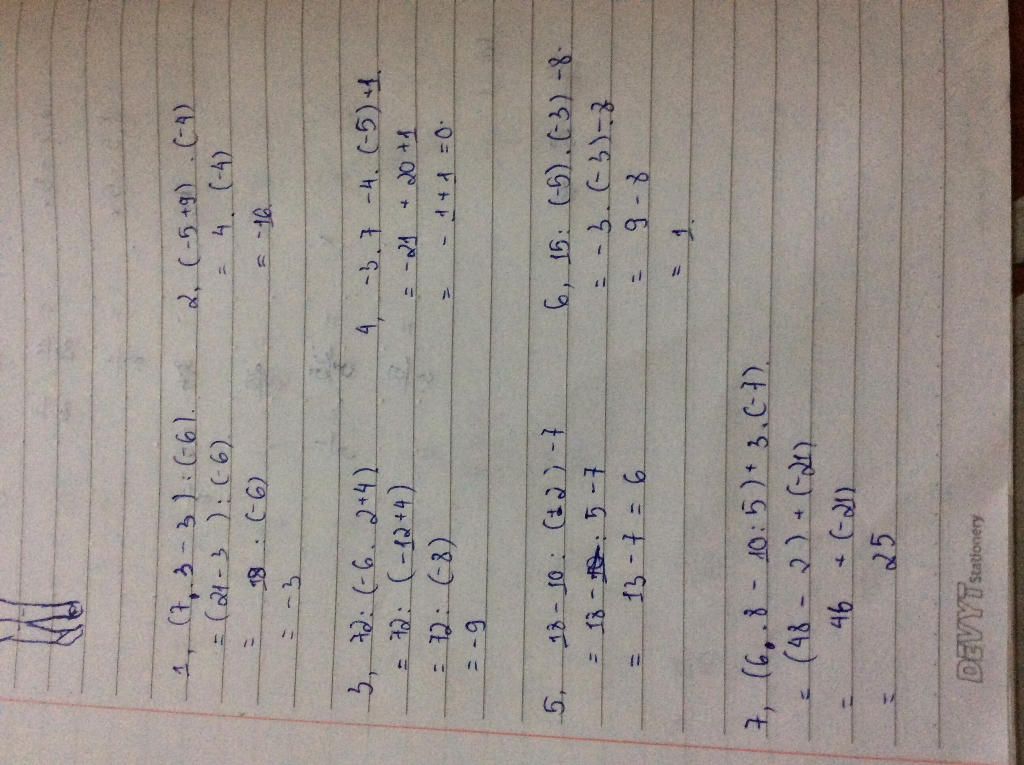 1, (7.3-3):(-6).
= (21-3):(-6)
= 18:(-6)
= -3
2, (-5+9).(-4)
= 4.(-4)
= -16
3, 72:(-6.2+4)
= 72:(-12+4)
= 72:(-8)
= -9
4, -3.7-4.(-5)+1.
= -21+20+1
= -1+1=0.
5, 18-10:(+2)-7
= 18-5-7
= 13-7=6
6, 15:(-5).(-3)-8.
= -3.(-3)-8
= 9-8
= 1.
7, (6.8-10:5)+3.(-7).
= (48-2)+(-21)
= 46+(-21)
= 25
DEVYT Stationery